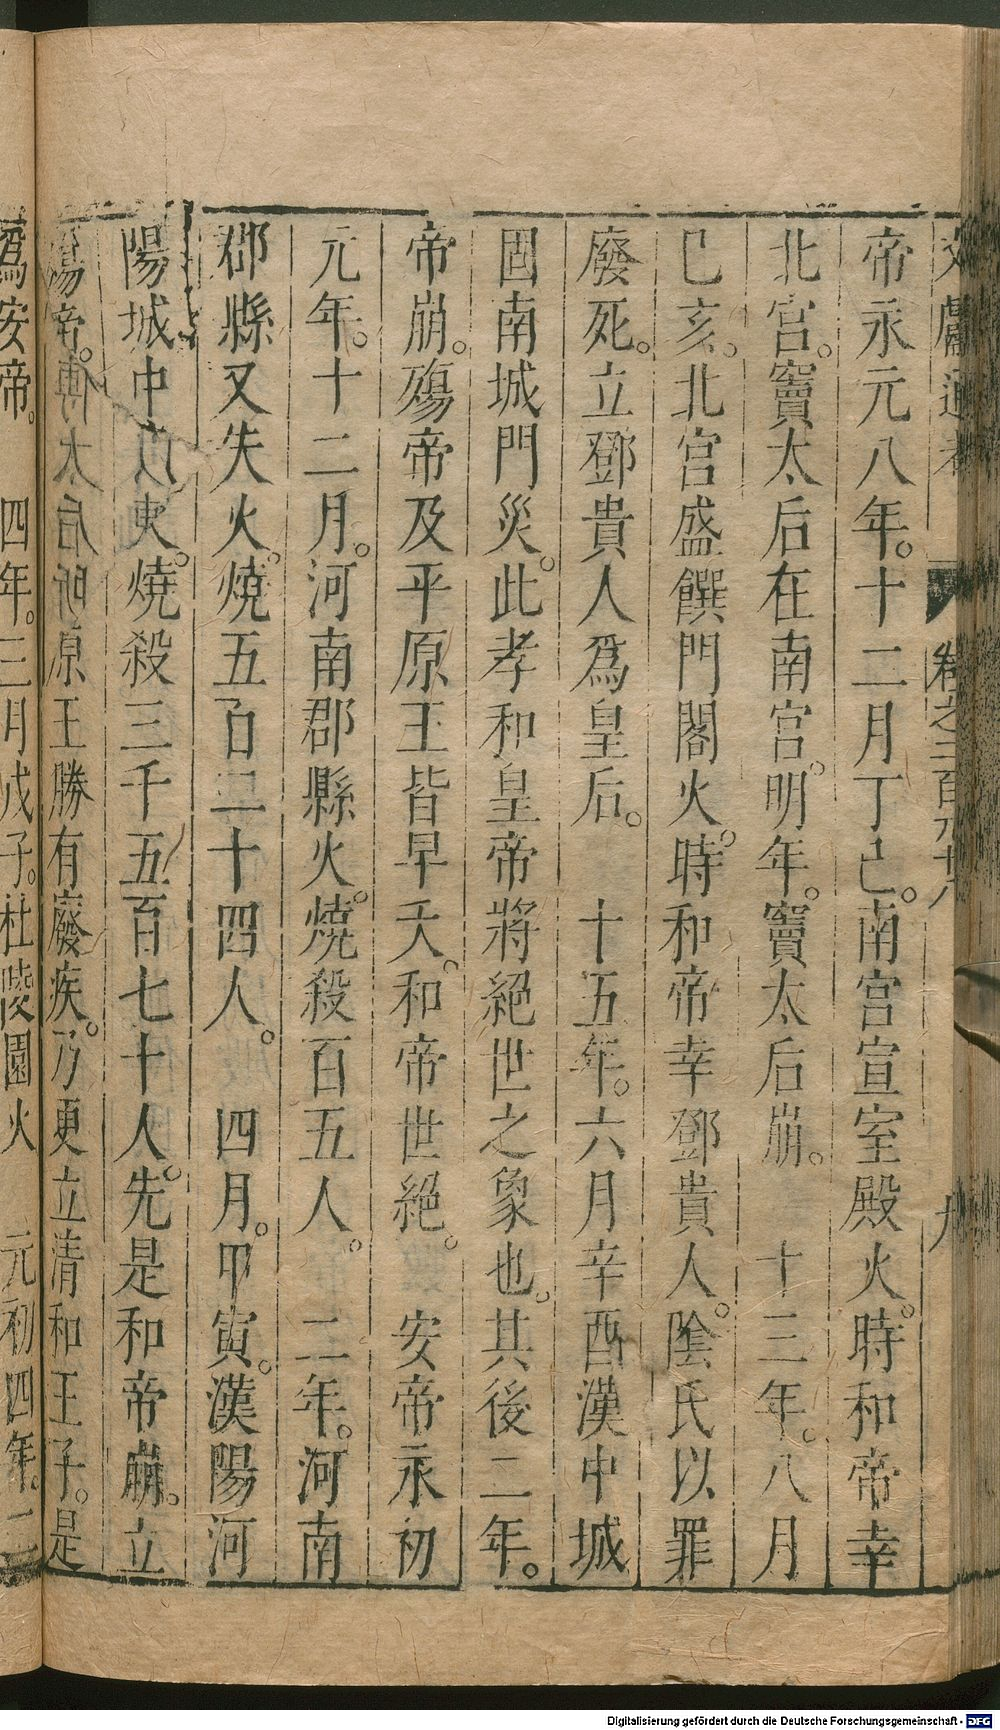 文獻通考 卷之二百九十八 九
帝永元八年。十二月丁巳。南宫宣室殿火。時和帝幸
北宫。竇太后在南宫。明年。竇太后崩。 十三年。八月
己亥。北宫盛饌門閣火。時和帝幸鄧貴人。陰氏以罪
廢死。立鄧貴人爲皇后。 十五年。六月辛酉漢中城
固南城門災。此孝和皇帝將絕世之象也。其後二年。
帝崩。殤帝及平原王皆早夭。和帝世絕。 安帝永初
元年。十二月。河南郡縣火。燒殺百五人。 二年。河南
郡縣又失火。燒五百二十四人。 四月。甲寅。漢陽河
陽城中火。燒殺三千五百七十人。先是和帝崩。立
殤帝。太后所原王勝有廢疾。乃更立清和王子。是
爲安帝。 四年。三月戊子。杜陵園火 元初四年。二
Digitalisierung gefördert durch die Deutsche Forschungsgemeinschaft - DFG